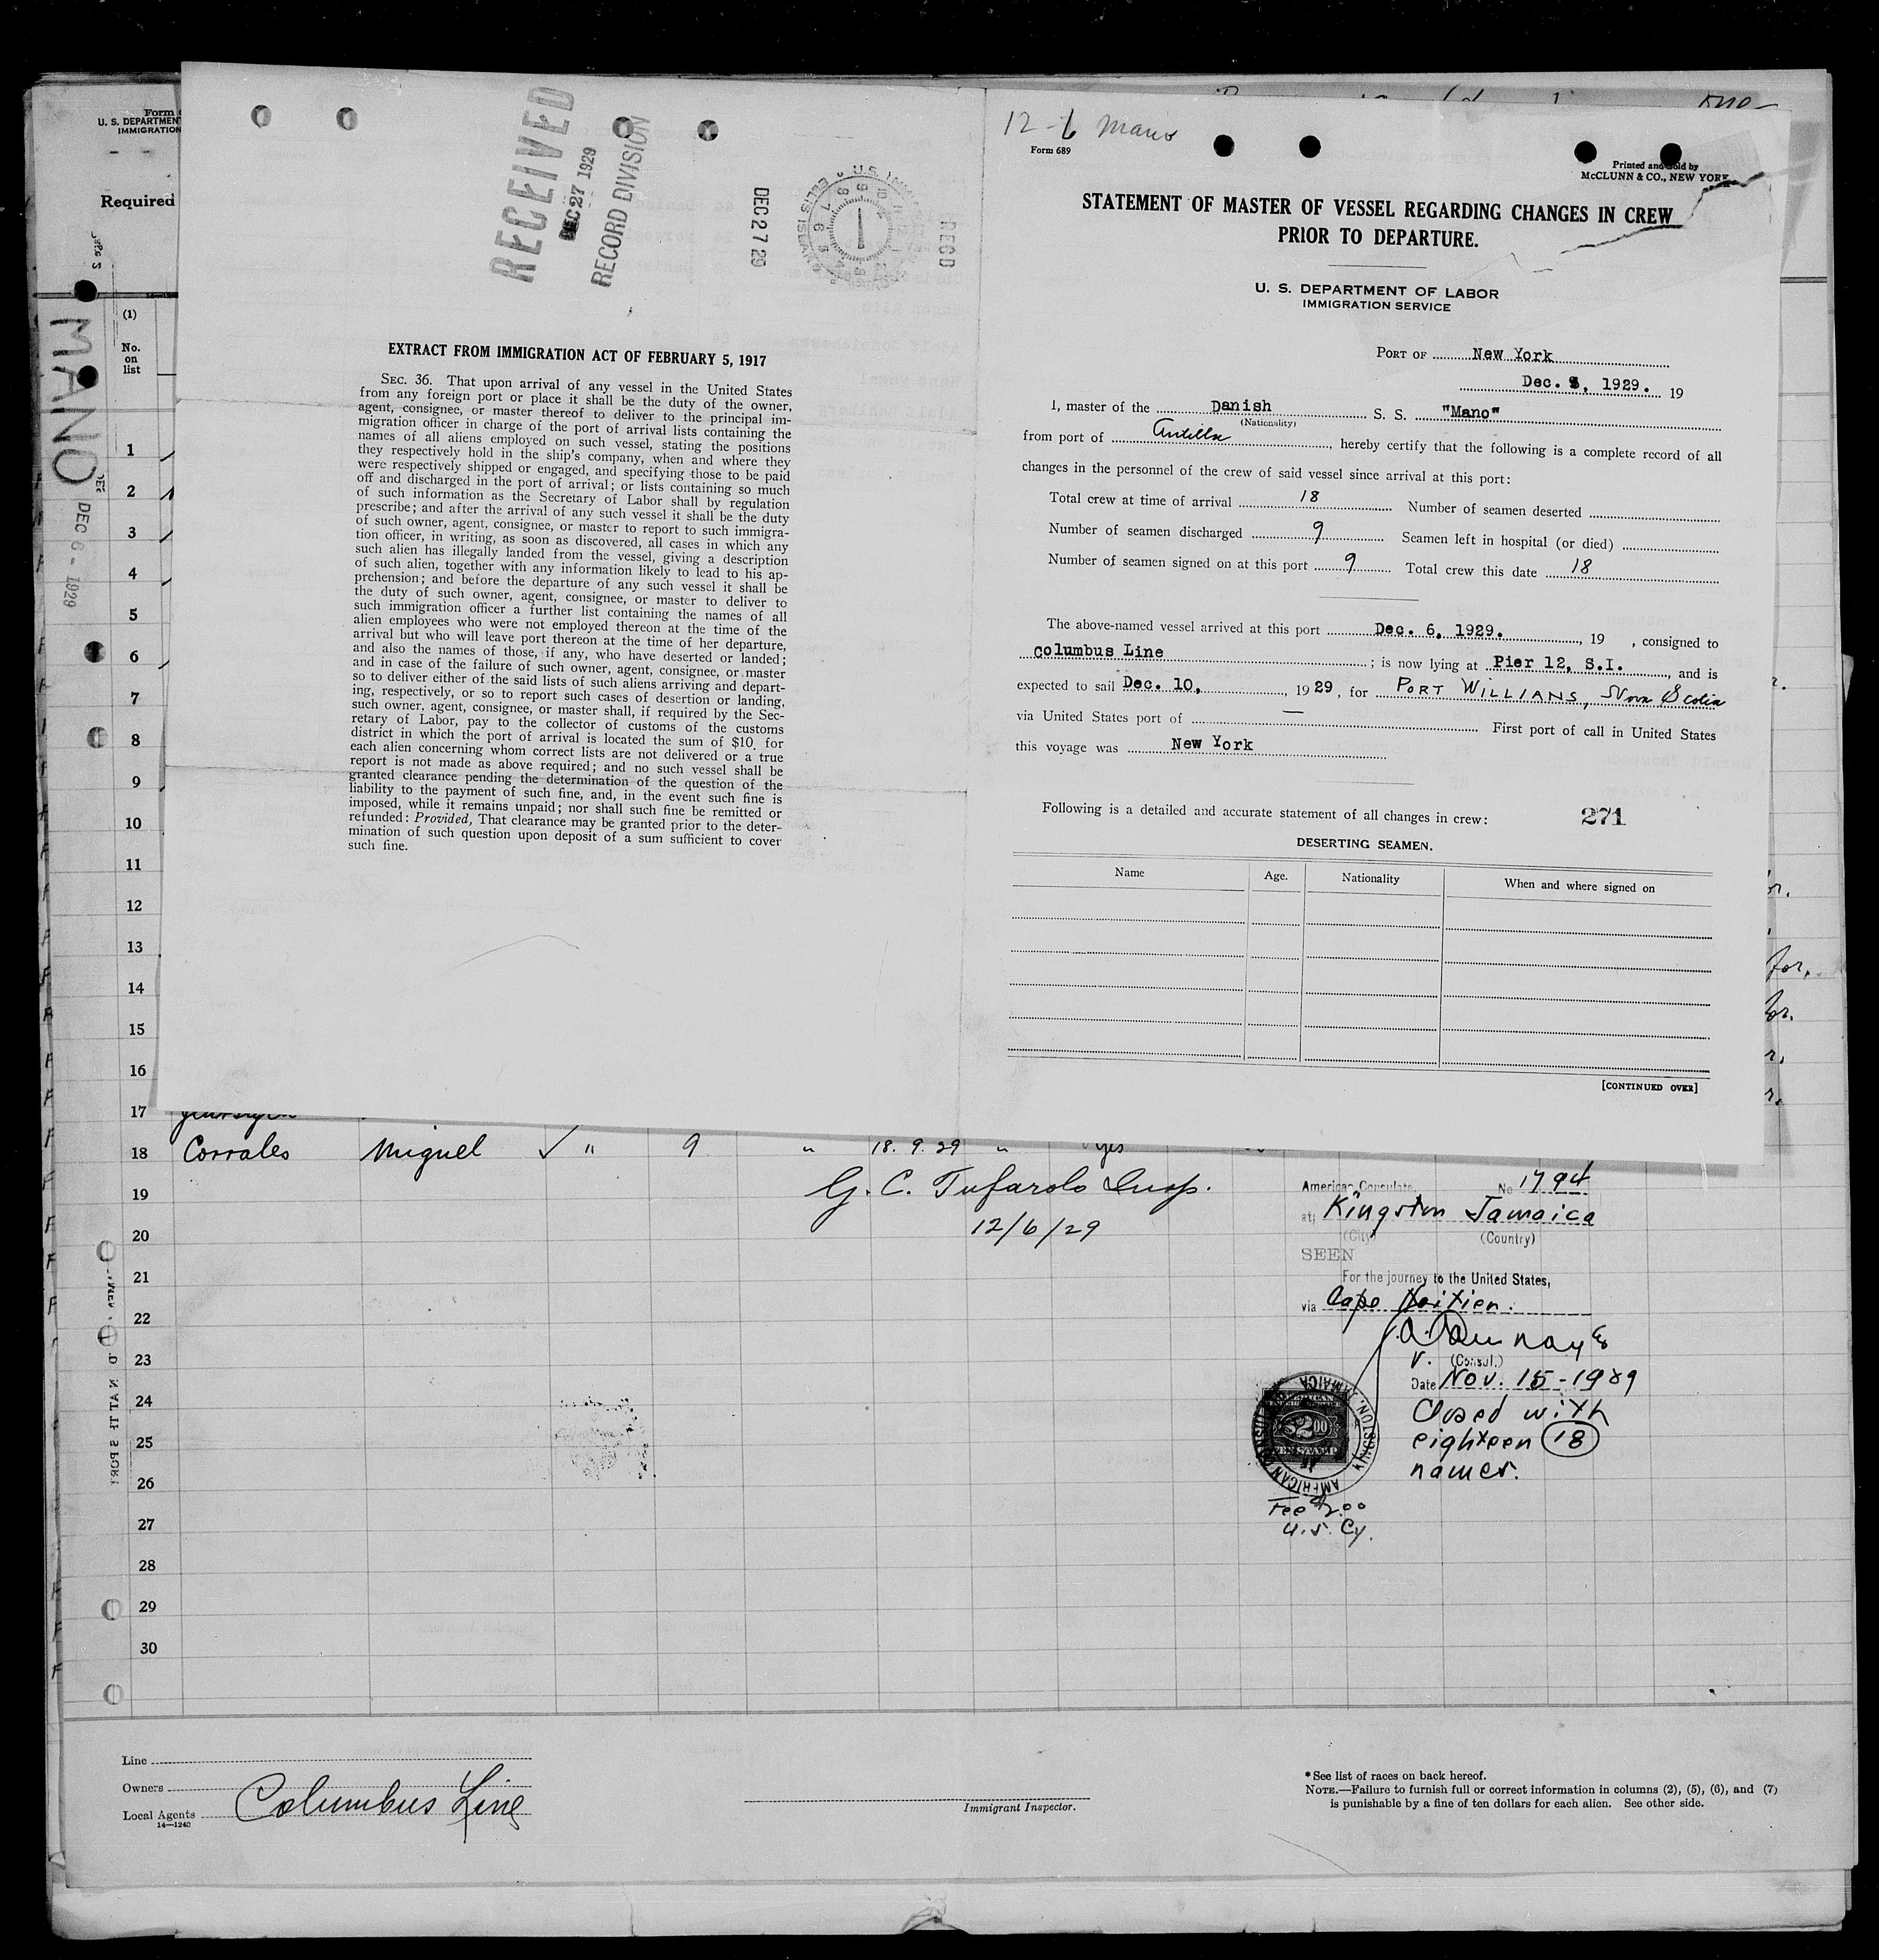 Form
U. S. DEPARTMENT
IMMIGRATION
Required
MANO
DEC 6 - 1929
(1)
No.
on
list
1
2
3
4
5
6
7
8
9
10
11
12
13
14
15
16
17
RECEIVED
DEC 27 1929
RECORD DIVISION
DEC 27 29
REC'D
EXTRACT FROM IMMIGRATION ACT OF FEBRUARY 5, 1917
SEC. 36. That upon arrival of any vessel in the United States
from any foreign port or place it shall be the duty of the owner,
agent, consignee, or master thereof to deliver to the principal im-
migration officer in charge of the port of arrival lists containing the
names of all aliens employed on such vessel, stating the positions
they respectively hold in the ship's company, when and where they
were respectively shipped or engaged, and specifying those to be paid
off and discharged in the port of arrival; or lists containing so much
of such information as the Secretary of Labor shall by regulation
prescribe; and after the arrival of any such vessel it shall be the duty
of such owner, agent, consignee, or master to report to such immigra-
tion officer, in writing, as soon as discovered, all cases in which any
such alien has illegally landed from the vessel, giving a description
of such alien, together with any information likely to lead to his ap-
prehension; and before the departure of any such vessel it shall be
the duty of such owner, agent, consignee, or master to deliver to
such immigration officer a further list containing the names of all
alien employees who were not employed thereon at the time of the
arrival but who will leave port thereon at the time of her departure,
and also the names of those, if any, who have deserted or landed;
and in case of the failure of such owner, agent, consignee, or master
so to deliver either of the said lists of such aliens arriving and depart-
ing, respectively, or so to report such cases of desertion or landing,
such owner, agent, consignee, or master shall, if required by the Sec-
retary of Labor, pay to the collector of customs of the customs
district in which the port of arrival is located the sum of $10 for
each alien concerning whom correct lists are not delivered or a true
report is not made as above required; and no such vessel shall be
granted clearance pending the determination of the question of the
liability to the payment of such fine, and, in the event such fine is
imposed, while it remains unpaid; nor shall such fine be remitted or
refunded: Provided, That clearance may be granted prior to the deter-
mination of such question upon deposit of a sum sufficient to cover
such fine.
12-6 Mano
Form 689
Printed and Sold by
McCLUNN & CO., NEW YORK
STATEMENT OF MASTER OF VESSEL REGARDING CHANGES IN CREW
PRIOR TO DEPARTURE.
U. S. DEPARTMENT OF LABOR
IMMIGRATION SERVICE
PORT OF New York
Dec. 9, 1929. 19
I, master of the Danish S. S. "Mano"
(Nationality)
from port of Antilla, hereby certify that the following is a complete record of all
changes in the personnel of the crew of said vessel since arrival at this port:
Total crew at time of arrival 18 Number of seamen deserted
Number of seamen discharged 9 Seamen left in hospital (or died)
Number of seamen signed on at this port 9 Total crew this date 18
The above-named vessel arrived at this port Dec. 6, 1929., 19 , consigned to
columbus Line; is now lying at Pier 12, S.I., and is
expected to sail Dec. 10, 1929, for PORT WILLIANS, Nova Scotia
via United States port of — First port of call in United States
this voyage was New York
Following is a detailed and accurate statement of all changes in crew: 271
DESERTING SEAMEN.
Name Age. Nationality When and where signed on
[CONTINUED OVER]
18 Corrales Miguel ✓ " 9 " 18.9.29 " yes
19
G. C. Tufarolo Insp.
20
12/6/29
21
22
23
24
25
26
27
28
29
30
American Consulate, No 1794
at Kingston Jamaica
(City) (Country)
SEEN
For the journey to the United States,
via Cape Haitien.
V. (Consul.)
Date Nov. 15-1929
Closed with
eighteen 18
names.
AMERICAN
KINGSTON, JAMAICA
$2.00
Fee $2.00
U.S. Cy.
Line
Owners
Columbus Line
Local Agents
14—1240
Immigrant Inspector.
* See list of races on back hereof.
NOTE.—Failure to furnish full or correct information in columns (2), (5), (6), and (7)
is punishable by a fine of ten dollars for each alien. See other side.